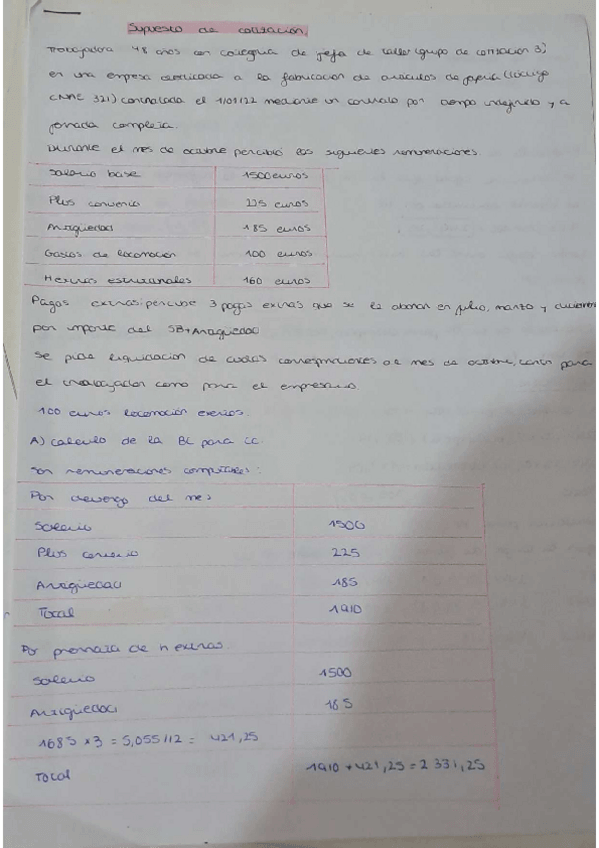 Supuesto de cotización
Trabajadora 48 años con categoría de jefa de taller (grupo de cotización 3)
en una empresa dedicada a la fabricación de artículos de joyería (código
CNAE 321) contratada el 1/01/22 mediante un contrato por tiempo indefinido y a
jornada completa.
Durante el mes de octubre percibió las siguientes remuneraciones.
Salario base 1500 euros
Plus convenio 225 euros
Antigüedad 185 euros
Gastos de locomoción 100 euros
H extras estructurales 160 euros
Pagas extras: percibe 3 pagas extras que se le abonan en julio, marzo y diciembre
por importe del SB + Antigüedad
Se pide liquidación de cuotas correspondientes al mes de octubre, tanto para
el trabajador como para el empresario
100 euros locomoción exentos.
A) calculo de la BC para CC.
Son remuneraciones computables:
Por devengo del mes
Salario 1500
Plus convenio 225
Antigüedad 185
Total 1910
Por prorrata de h extras.
Salario 1500
Antigüedad 185
1685 x 3 = 5,055 / 12 = 421,25
Total 1910 + 421,25 = 2331,25